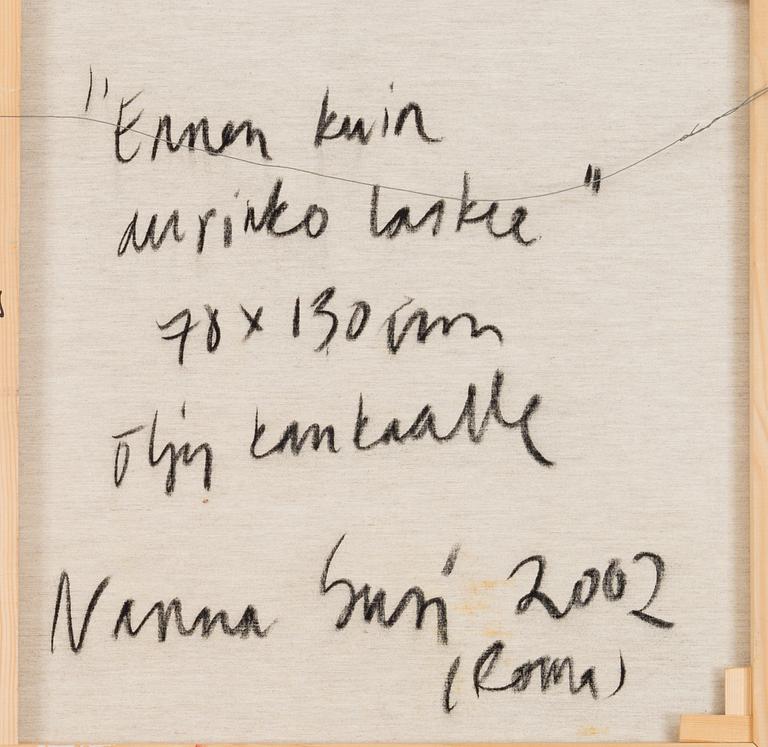 "Ennen kuin
aurinko laskee"
78 x 130 cm
öljy kankaalle
Nanna Susi 2002
(Roma)